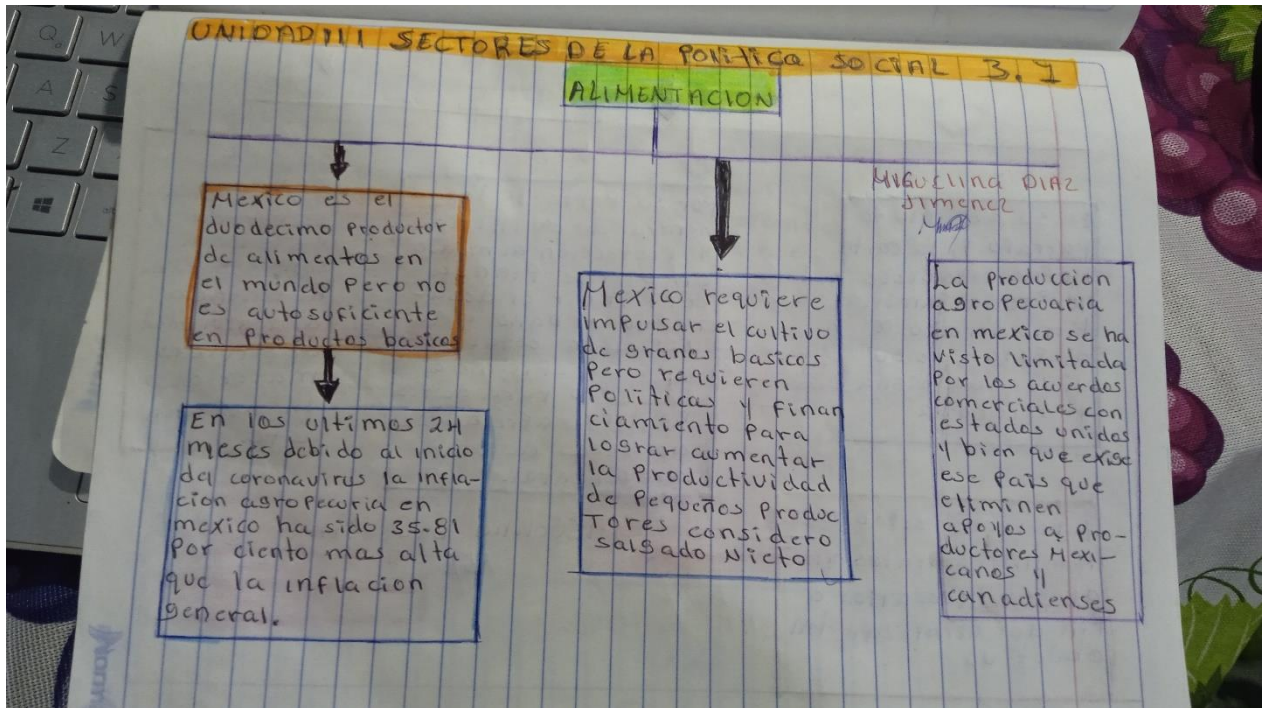 UNIDAD III SECTORES DE LA Politica SOCIAL 3.1
ALIMENTACION
Mexico es el
duodecimo Productor
de alimentos en
el mundo Pero no
es autosuficiente
en Productos basicos
En los ultimos 24
meses debido al inicio
del coronavirus la infla-
cion agropecuria en
mexico ha sido 35.81
Por ciento mas alta
que la inflacion
general.
Mexico requiere
impulsar el cultivo
de granos basicos
Pero requieren
Politicas y finan
ciamiento Para
lograr aumentar
la productividad
de Pequeños Produc
Tores considero
salgado Nieto
MIGUElina DIAZ
Jimenez
La produccion
agropecuaria
en mexico se ha
visto limitada
Por los acuerdos
comerciales con
estados unidos
y bien que exige
ese País que
eliminen
apoyos a pro-
ductores Mexi-
canos y
canadienses
Q
W
A
S
Z